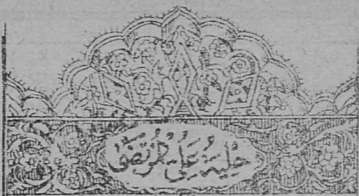 حليهٔ علي المرتضى